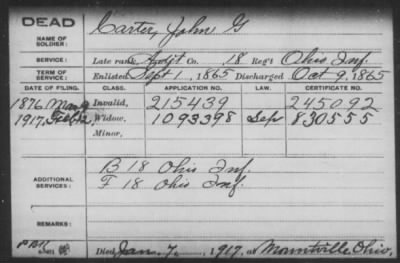 DEAD
NAME OF SOLDIER:
Carter, John G
SERVICE:
Late rank, Adjt Co. 18 Reg't Ohio Inf.
TERM OF SERVICE:
Enlisted Sept 1, 1865 Discharged Oct 9, 1865
DATE OF FILING. CLASS. APPLICATION NO. LAW. CERTIFICATE NO.
1876 Invalid, 215439 245092
1917, Feb Widow, 1093398 Sep 830555
Minor,
ADDITIONAL SERVICES:
B 18 Ohio Inf.
F 18 Ohio Inf.
REMARKS:
Died Jan. 7, 1917, at Mountville Ohio.